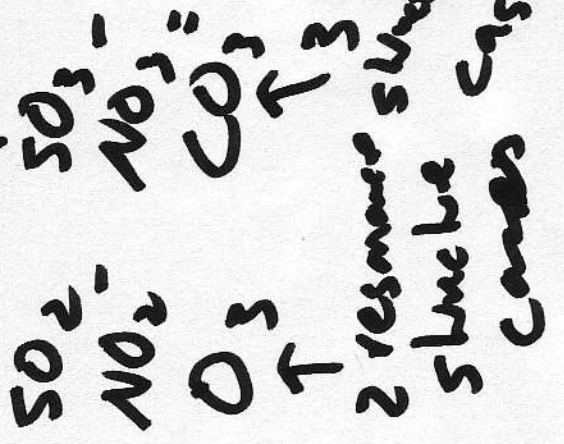 SO2
NO2-
O3
↑
2 resonance
structure
cases
SO3
NO3-
CO3=
↑
3